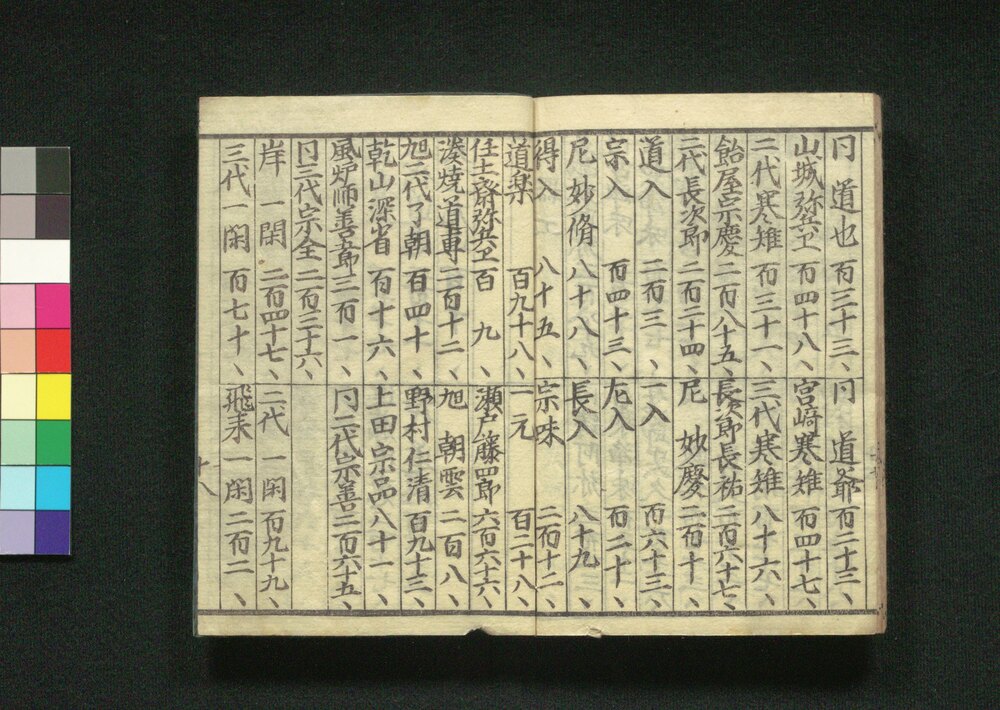 冂 道也 百三十三、 冂 道爺 百二十三、
山城弥兵ヱ 百四十八、 宮﨑寒雉 百四十七、
二代寒雉 百三十一、 三代寒雉 八十六、
飴屋宗慶 二百八十五、 長次郎長祐 二百六十七、
二代長次郎 二百二十四、 尼 妙慶 二百十、
道入 二百三七、 一入 百六十三、
宗入 百四十三、 左入 百二十、
尼 妙脩 八十八、 長入 八十九、
得入 八十五、 宗味 二百十二、
道楽 百九十八、 一元 百二十八、
任土斎弥兵ヱ 百九 瀬戸籐四郎 六百六十六、
湊焼道専 二百十二、 旭 朝雲 二百八、
旭二代了朝 百四十、 野村仁清 百九十三、
乾山深省 百十六、 上田宗品 八十一、
風炉師善五郎 三百一、 冂二代宗善 二百六十五、
冂三代宗全 二百三十六、
岸 一閑 二百四十七、 二代 一閑 百九十九、
三代 一閑 百七十、 飛来一閑 二百二、
十八